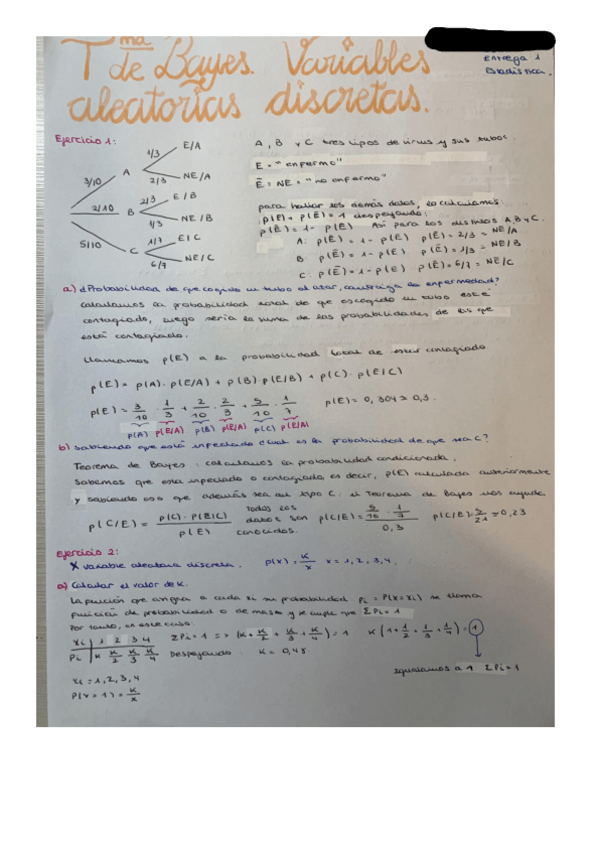 Tma de Bayes. Variables
aleatorias discretas.
Entrega 1
Estadística.
Ejercicio 1:
3/10 A 1/3 E/A
2/3 NE/A
2/10 B 2/3 E/B
1/3 NE/B
5/10 C 1/7 E/C
6/7 NE/C
A, B y C tres tipos de virus y sus tubos.
E = "enfermo"
Ē = NE = "no enfermo"
para hallar los demás datos, lo calculamos:
p(E) + p(Ē) = 1 despejando:
p(Ē) = 1 - p(E) Así para los distintos A, B y C.
A: p(Ē) = 1 - p(E) p(Ē) = 2/3 = NE/A
B p(Ē) = 1 - p(E) p(Ē) = 1/3 = NE/B
C: p(Ē) = 1 - p(E) p(Ē) = 6/7 = NE/C
a) ¿Probabilidad de que cogido un tubo al azar, contraiga la enfermedad?
calculamos la probabilidad total de que escogido un tubo esté
contagiado, luego sería la suma de las probabilidades de los que
está contagiado.
llamamos p(E) a la probabilidad total de estar contagiado
p(E) = p(A) · p(E/A) + p(B) · p(E/B) + p(C) · p(E/C)
p(E) = 3/10 · 1/3 + 2/10 · 2/3 + 5/10 · 1/7 p(E) = 0,304 ≈ 0,3.
p(A) p(E/A) p(B) p(E/A) p(C) p(E/A)
b) Sabiendo que está infectado cual es la probabilidad de que sea C?
Teorema de Bayes: calculamos la probabilidad condicionada.
Sabemos que esta infectado o contagiado es decir, p(E) calculada anteriormente
y sabiendo eso que además sea del tipo C. el Teorema de Bayes nos ayuda
p(C/E) = p(C) · P(E/C) / p(E) Todos los datos son conocidos. p(C/E) = 5/10 · 1/7 / 0,3 p(C/E) = 5/21 ≈ 0,23
Ejercicio 2:
X variable aleatoria discreta. p(x) = K/x x = 1, 2, 3, 4.
a) Calcular el valor de K.
La función que asigna a cada xi su probabilidad Pi = P(X=Xi) se llama
función de probabilidad o de masa y se cumple que ΣPi = 1
Por tanto, en este caso:
Xi | 1 2 3 4 ΣPi = 1 => (K + K/2 + K/3 + K/4) = 1 K (1 + 1/2 + 1/3 + 1/4) = 1
Pi | K K/2 K/3 K/4 Despejando: K = 0,48
Xi = 1, 2, 3, 4
P(x = 1) = K/x
igualamos a 1 ΣPi = 1